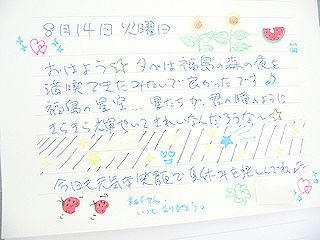 8月14日 火曜日
おはよう☆ 夕べは福島の森の夜を
満喫できたみたいで良かったです♪
福島の星空… 星たちが、君の瞳のように
きらきら輝やいてきれいなんだろうな〜☆
今日も元気な笑顔で夏休みを楽しんでね
いつもありがとう。